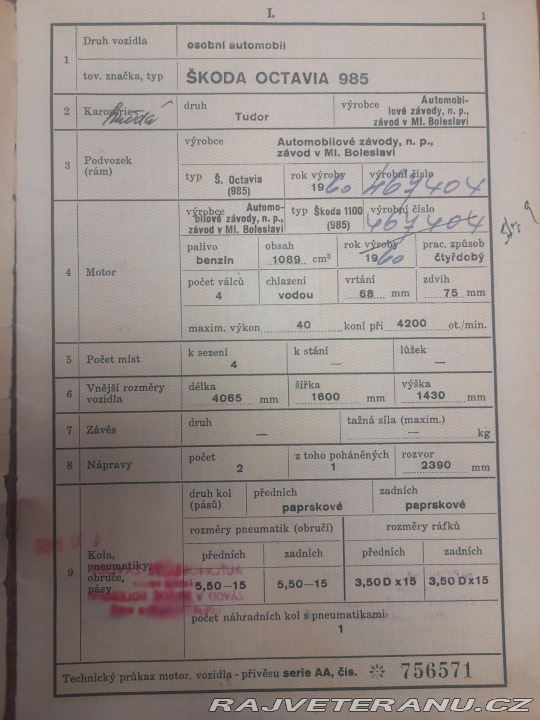 I.
1
1 Druh vozidla osobní automobil
tov. značka, typ ŠKODA OCTAVIA 985
2 Karoserie druh Tudor výrobce Automobi-
lové závody, n. p.,
závod v Ml. Boleslavi
3 Podvozek (rám) výrobce Automobilové závody, n. p.,
závod v Ml. Boleslavi
typ Š. Octavia (985) rok výroby 1960 výrobní číslo 467404
4 Motor výrobce Automo-
bilové závody, n. p.,
závod v Ml. Boleslavi
typ Škoda 1100 (985) výrobní číslo 467404
palivo benzin obsah 1089 cm³ rok výroby 1960 prac. způsob čtyřdobý
počet válců 4 chlazení vodou vrtání 68 mm zdvih 75 mm
maxim. výkon 40 koní při 4200 ot./min.
5 Počet míst k sezení 4 k stání — lůžek —
6 Vnější rozměry vozidla délka 4065 mm šířka 1600 mm výška 1430 mm
7 Závěs druh — tažná síla (maxim.) — kg
8 Nápravy počet 2 z toho poháněných 1 rozvor 2390 mm
9 Kola, pneumatiky, obruče, pásy
druh kol (pásů) předních paprskové zadních paprskové
rozměry pneumatik (obručí) rozměry ráfků
předních zadních předních zadních
5,50—15 5,50—15 3,50 D x 15 3,50 D x 15
počet náhradních kol s pneumatikami
1
Technický průkaz motor. vozidla - přívěsu serie AA, čís. 756571
RAJVETERANU.CZ